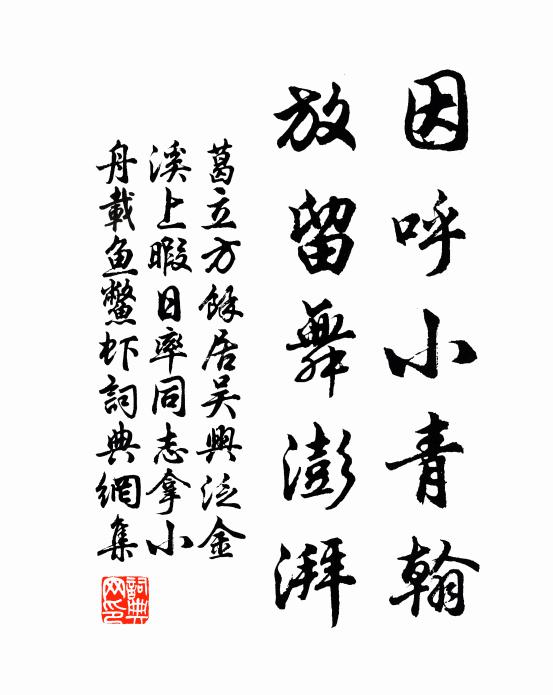 因呼小青翰
放留舞澎湃
葛立方餘居吴興泛金
溪上暇日率同志拿小
舟載魚鳖虾詞典網集
詞典網印